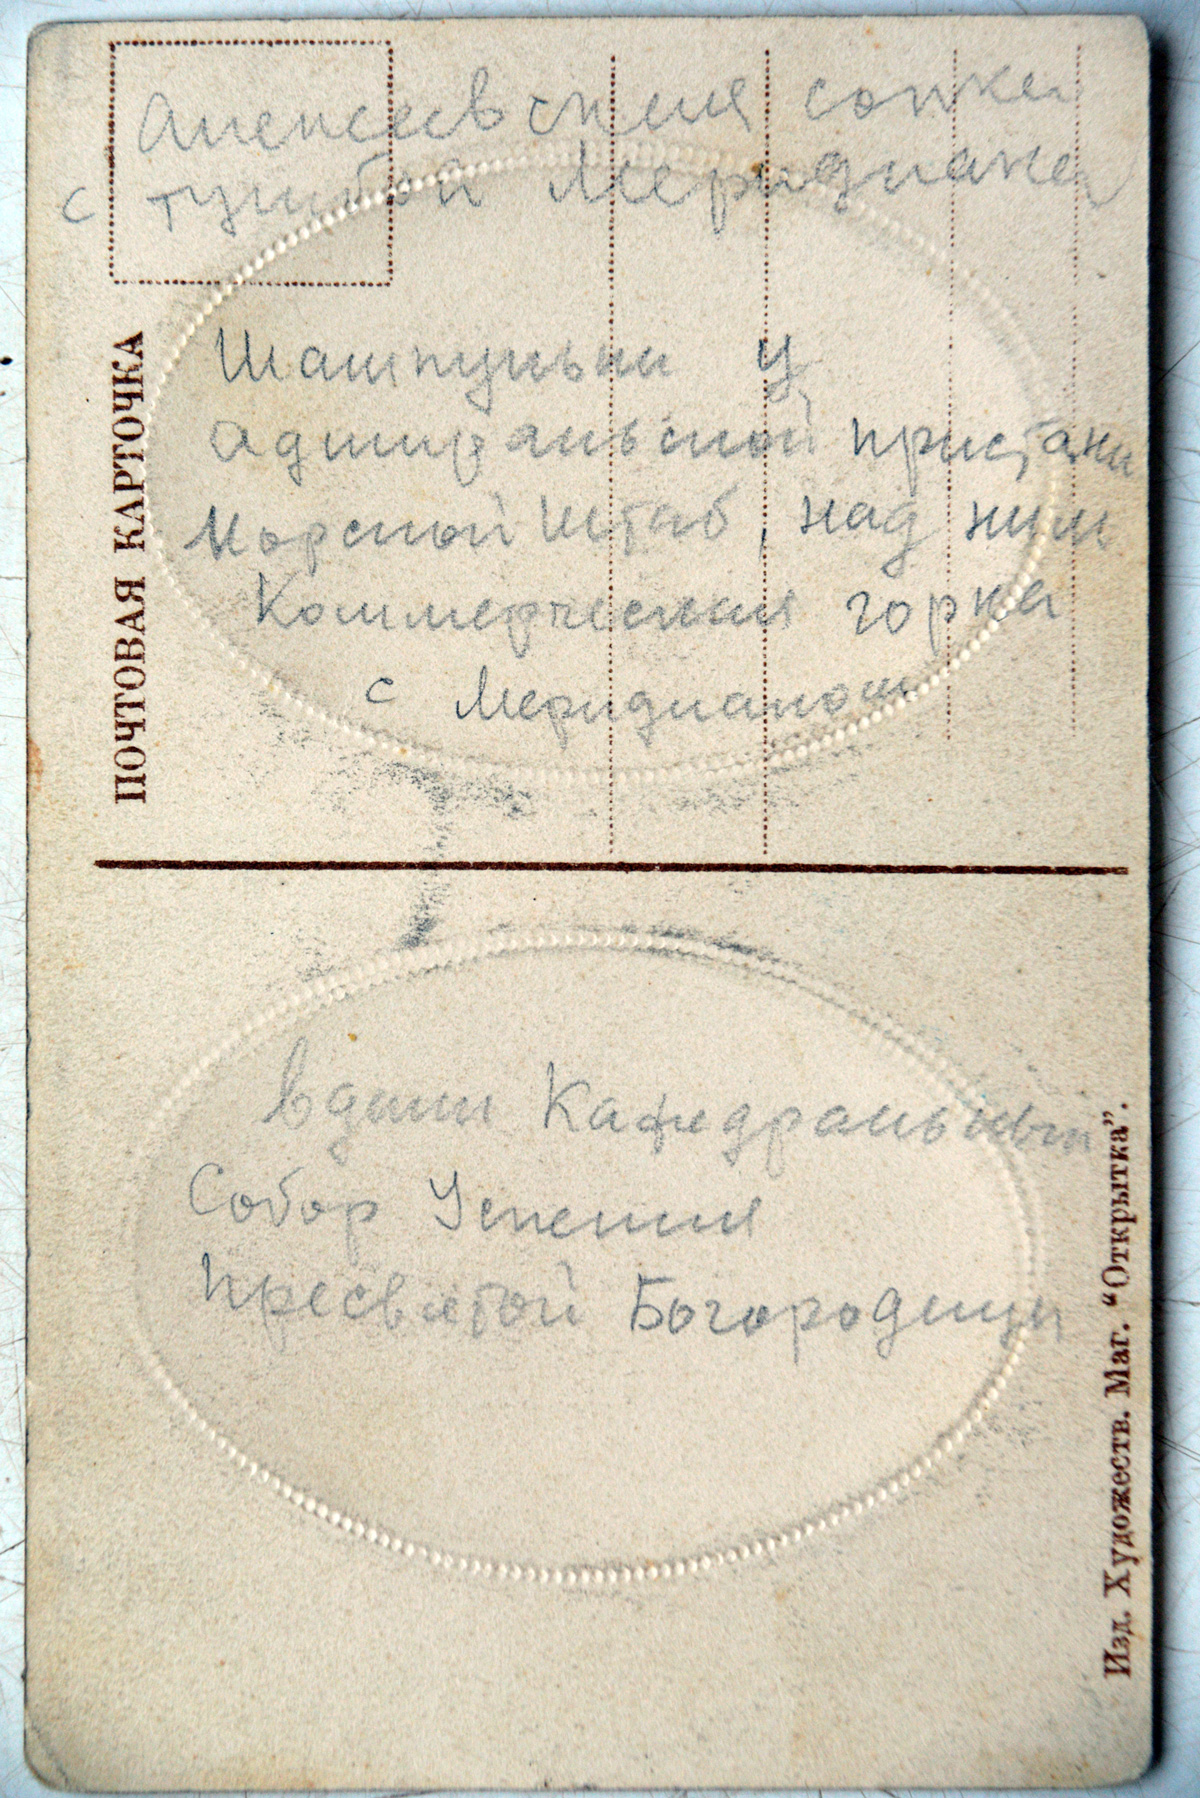 Алексеевская сопка
с тумбой Меридиана
Шампуньки у
Адмиральской пристани
Морской Штаб, над ним
Коммерческая горка
с Меридианом
ПОЧТОВАЯ КАРТОЧКА
вдали Кафедральный
Собор Успения
Пресвятой Богородицы
Изд. Художеств. Маг. “Открытка”.